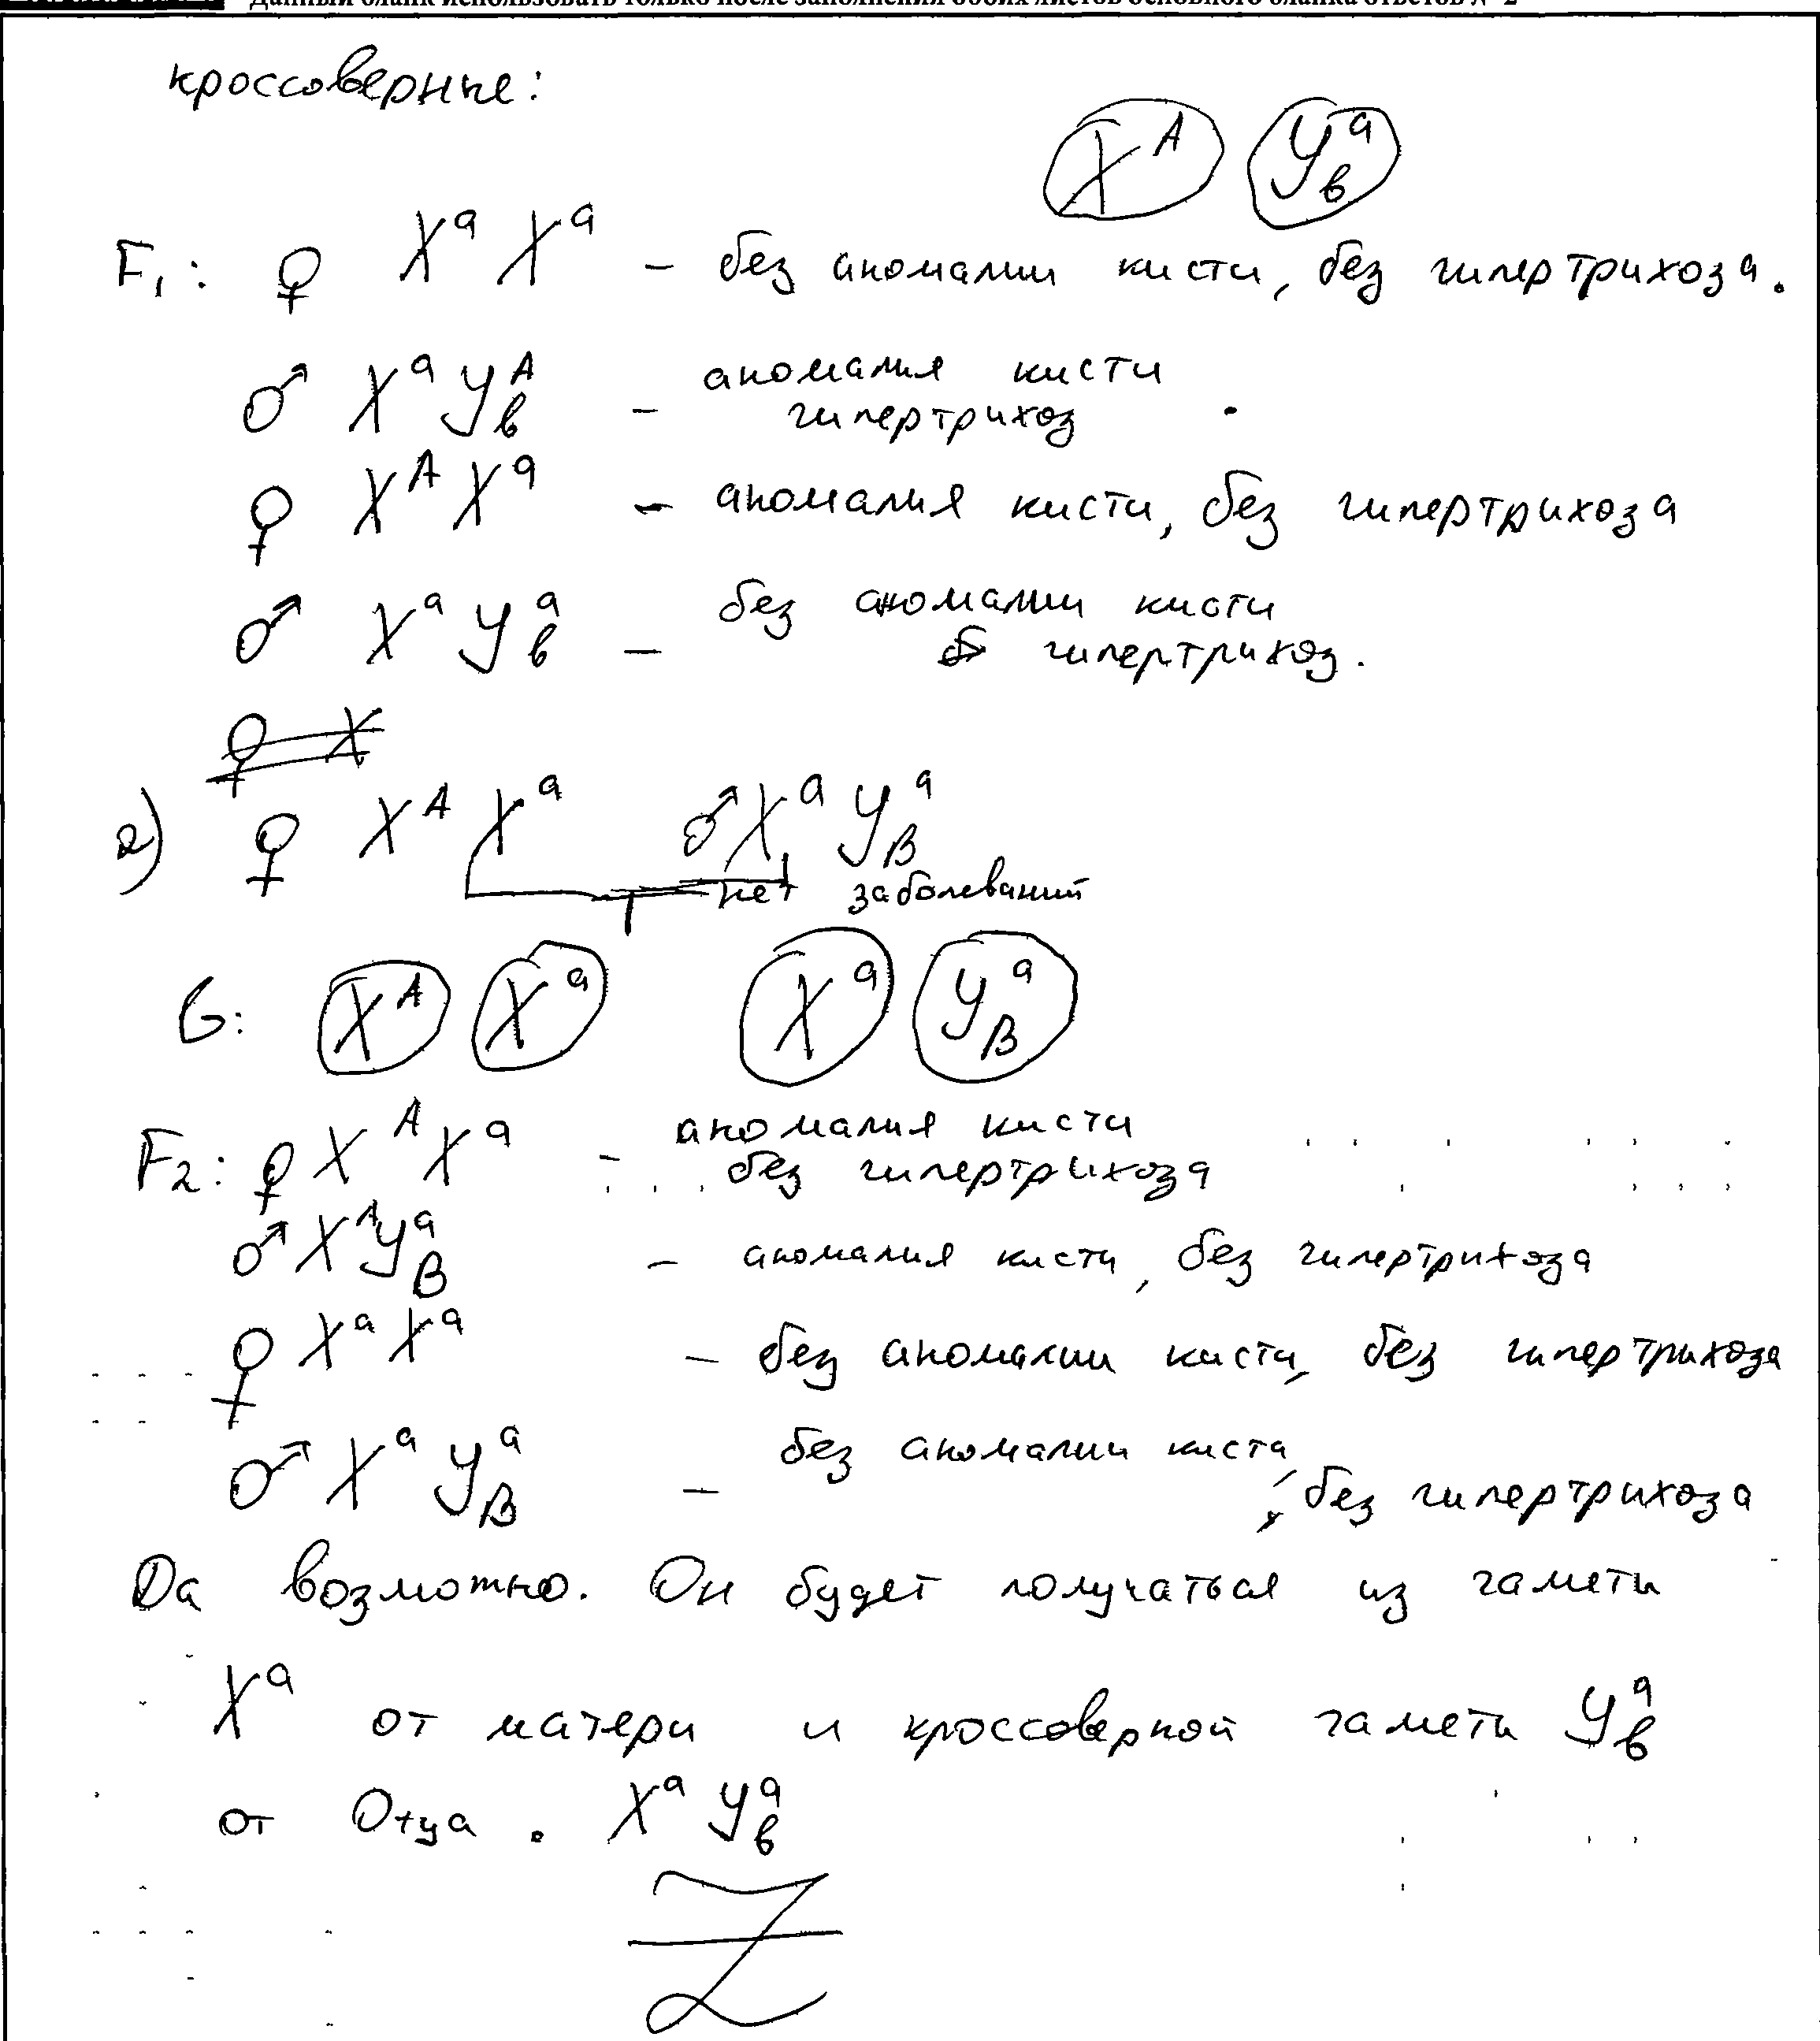 Данный бланк использовать только после заполнения обоих листов основного бланка ответов № 2
кроссоверные:
X^A Y^a_b
F₁: ♀ X^a X^a – без аномалии кисти, без гипертрихоза.
♂ X^a Y^A_b – аномалия кисти
гипертрихоз .
♀ X^A X^a – аномалия кисти, без гипертрихоза
♂ X^a Y^a_b – без аномалии кисти
гипертрихоз.
♀ X
2) ♀ X^A X^a ♂ X^a Y^a_B
нет заболеваний
G: X^A X^a X^a Y^a_B
F₂: ♀ X^A X^a – аномалия кисти
без гипертрихоза
♂ X^A Y^a_B – аномалия кисти, без гипертрихоза
♀ X^a X^a – без аномалии кисти, без гипертрихоза
♂ X^a Y^a_B – без аномалии кисти,
без гипертрихоза
Да возможно. Он будет получаться из гаметы
X^a от матери и кроссоверной гаметы Y^a_b
от Отца . X^a Y^a_b
Z